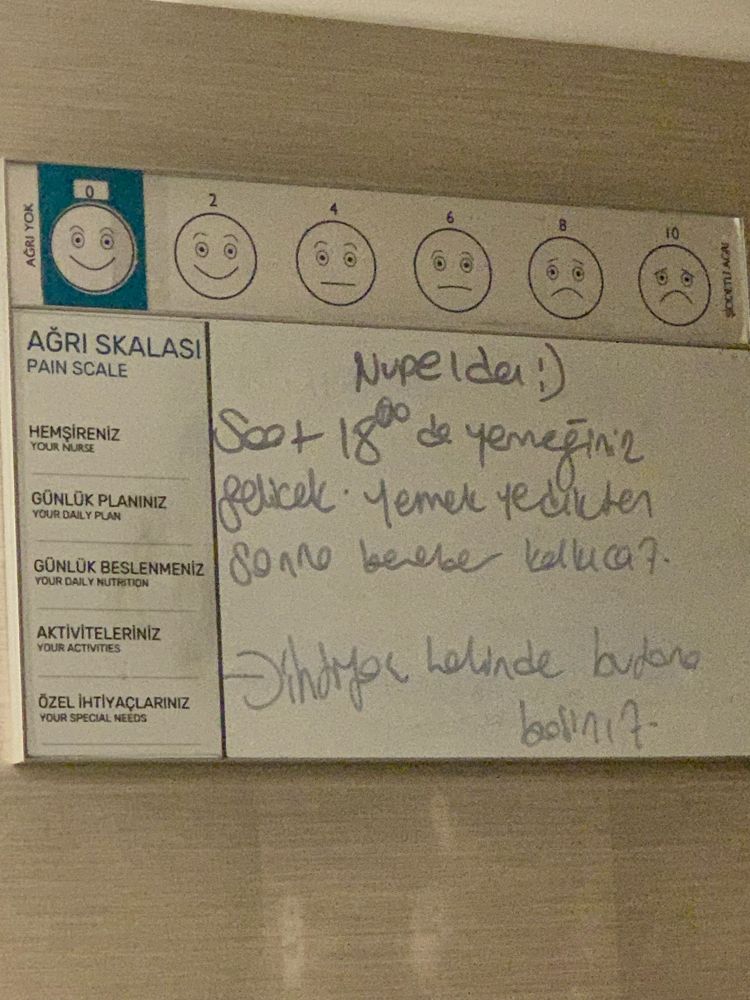 0
2
4
6
8
10
AĞRI YOK
ŞİDDETLİ AĞRI
AĞRI SKALASI
PAIN SCALE
HEMŞİRENİZ
YOUR NURSE
GÜNLÜK PLANINIZ
YOUR DAILY PLAN
GÜNLÜK BESLENMENİZ
YOUR DAILY NUTRITION
AKTİVİTELERİNİZ
YOUR ACTIVITIES
ÖZEL İHTİYAÇLARINIZ
YOUR SPECIAL NEEDS
Nupelda :)
Saat 18⁰⁰ de yemeğiniz
gelicek. Yemek yedikten
sonra beraber kalkıcaz.
→ ihtiyaç halinde butona
basınız.